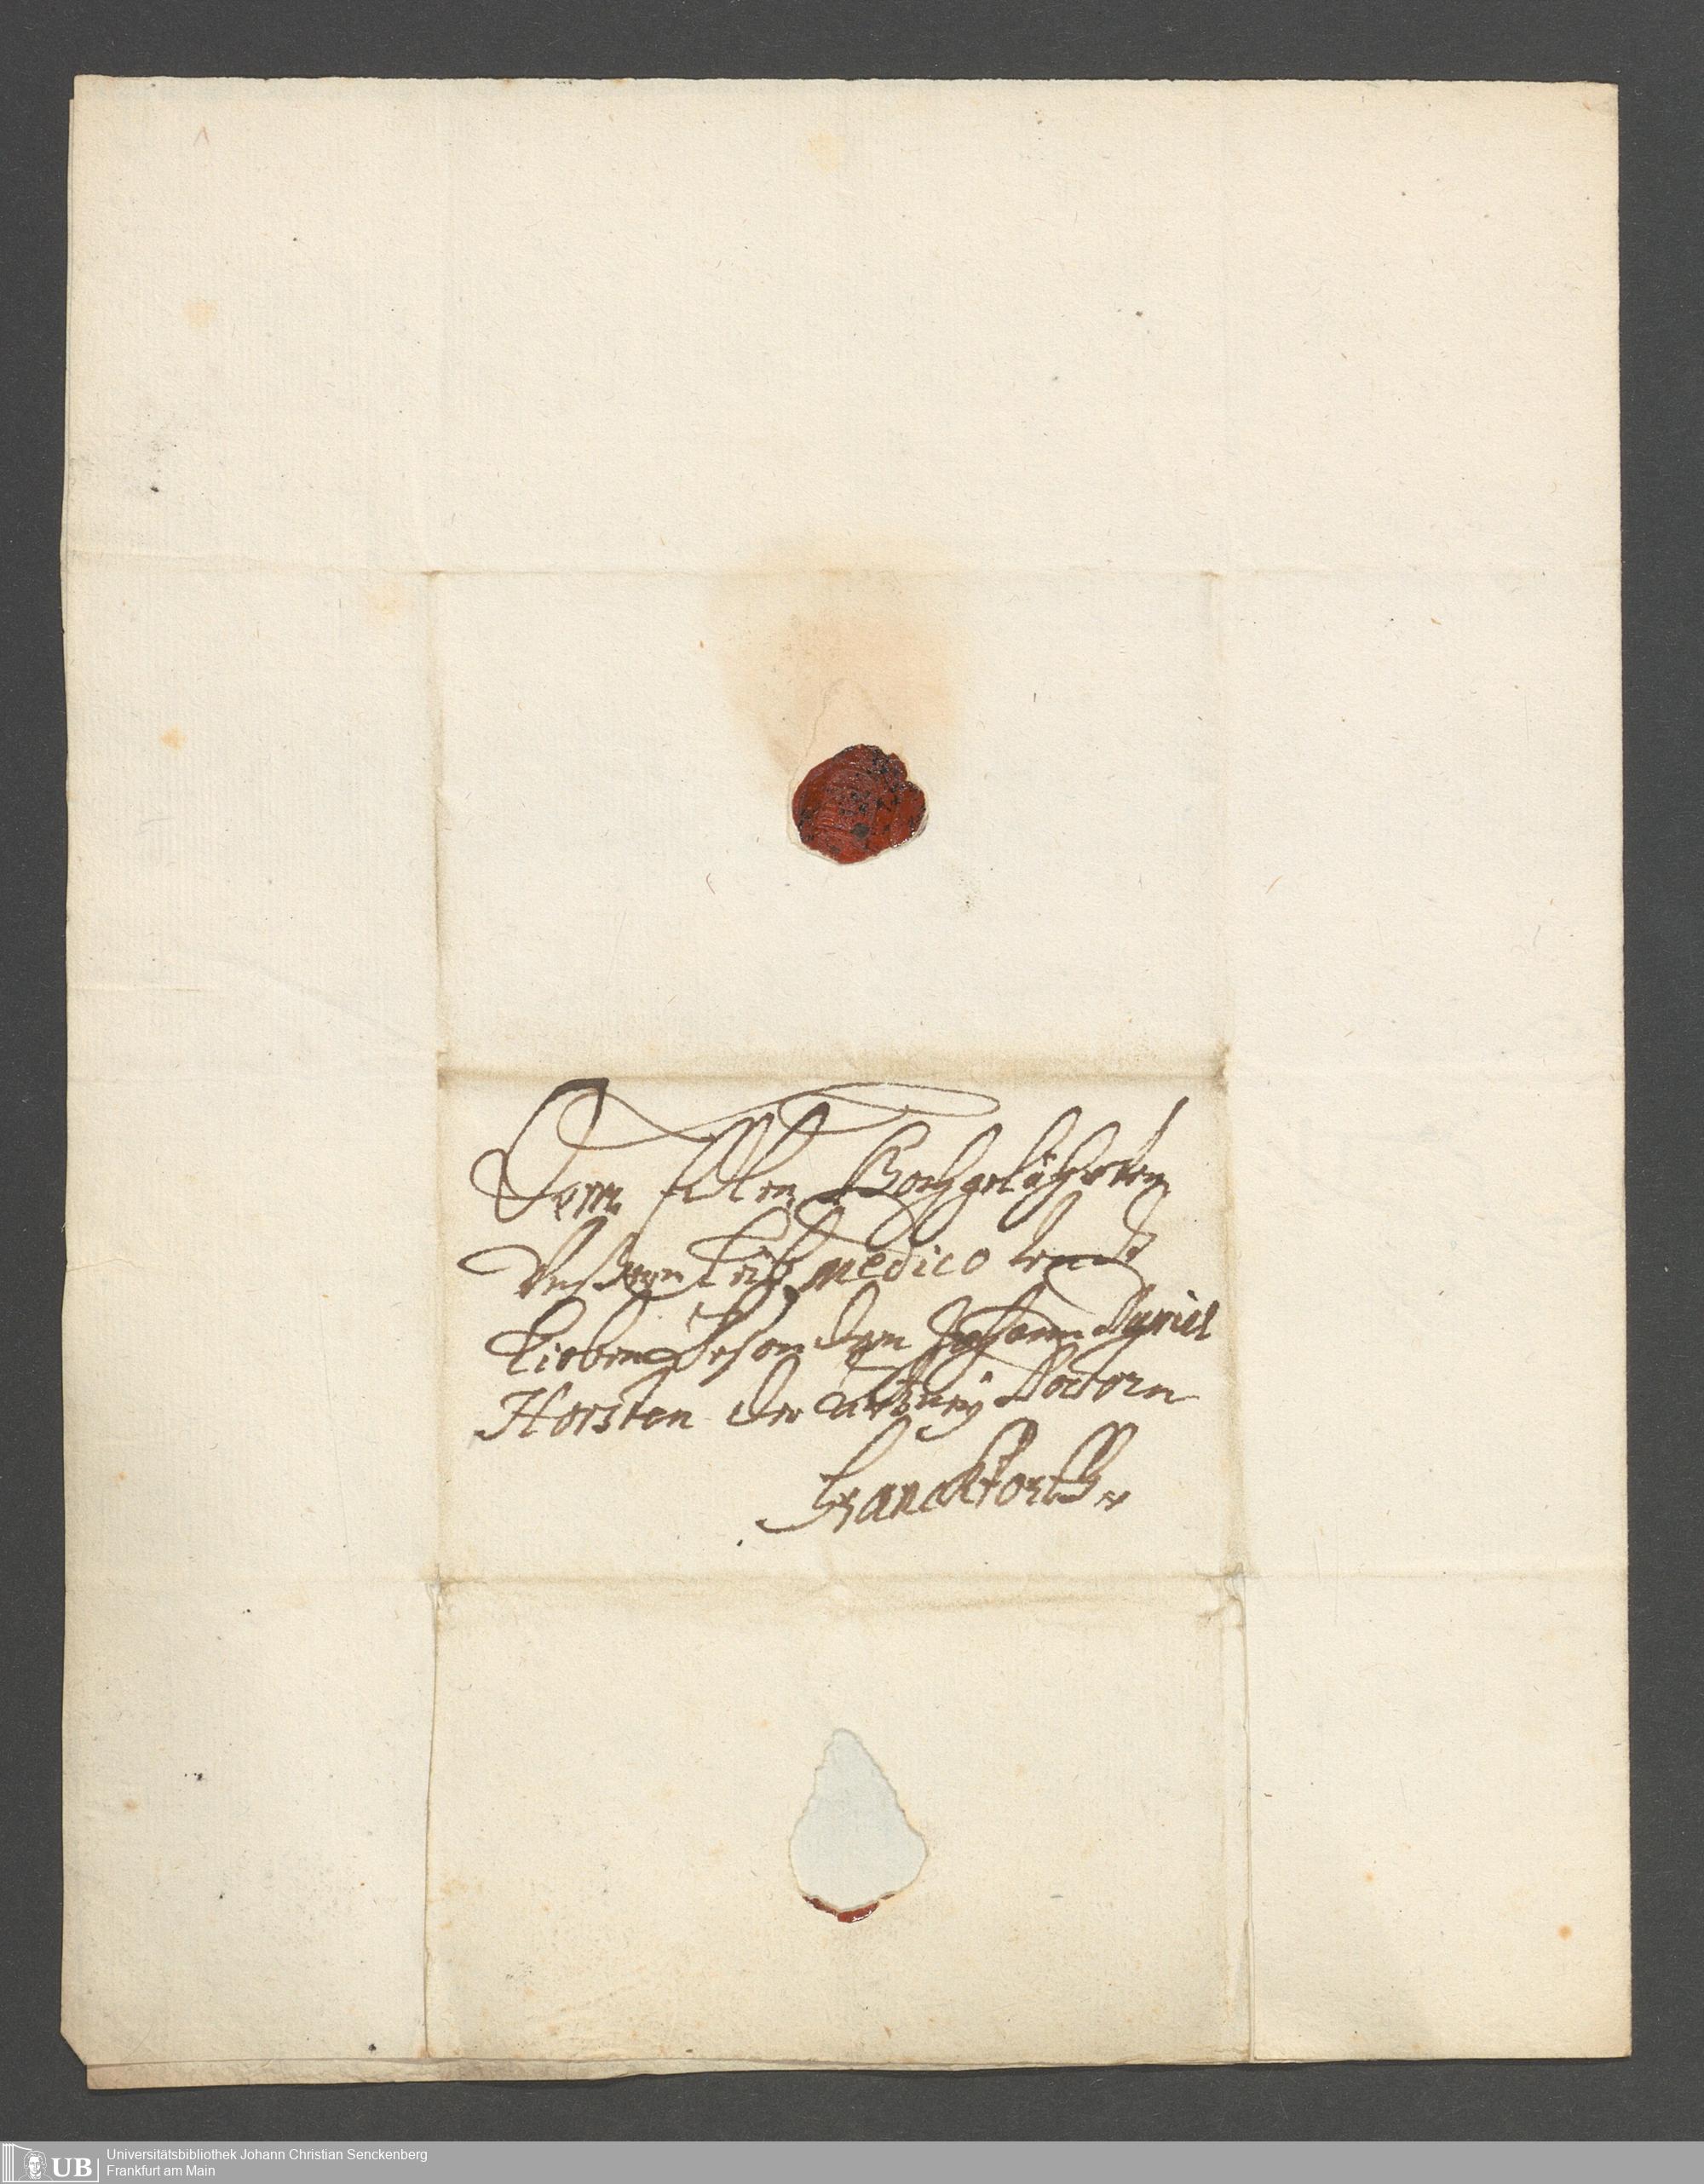 Dem Edlen Hochgelährten
Unßern Leib medico undt
Lieben Besondern Johann Daniel
Horsten der artzney Doctorn
Franckforth
UB
Universitätsbibliothek Johann Christian Senckenberg
Frankfurt am Main